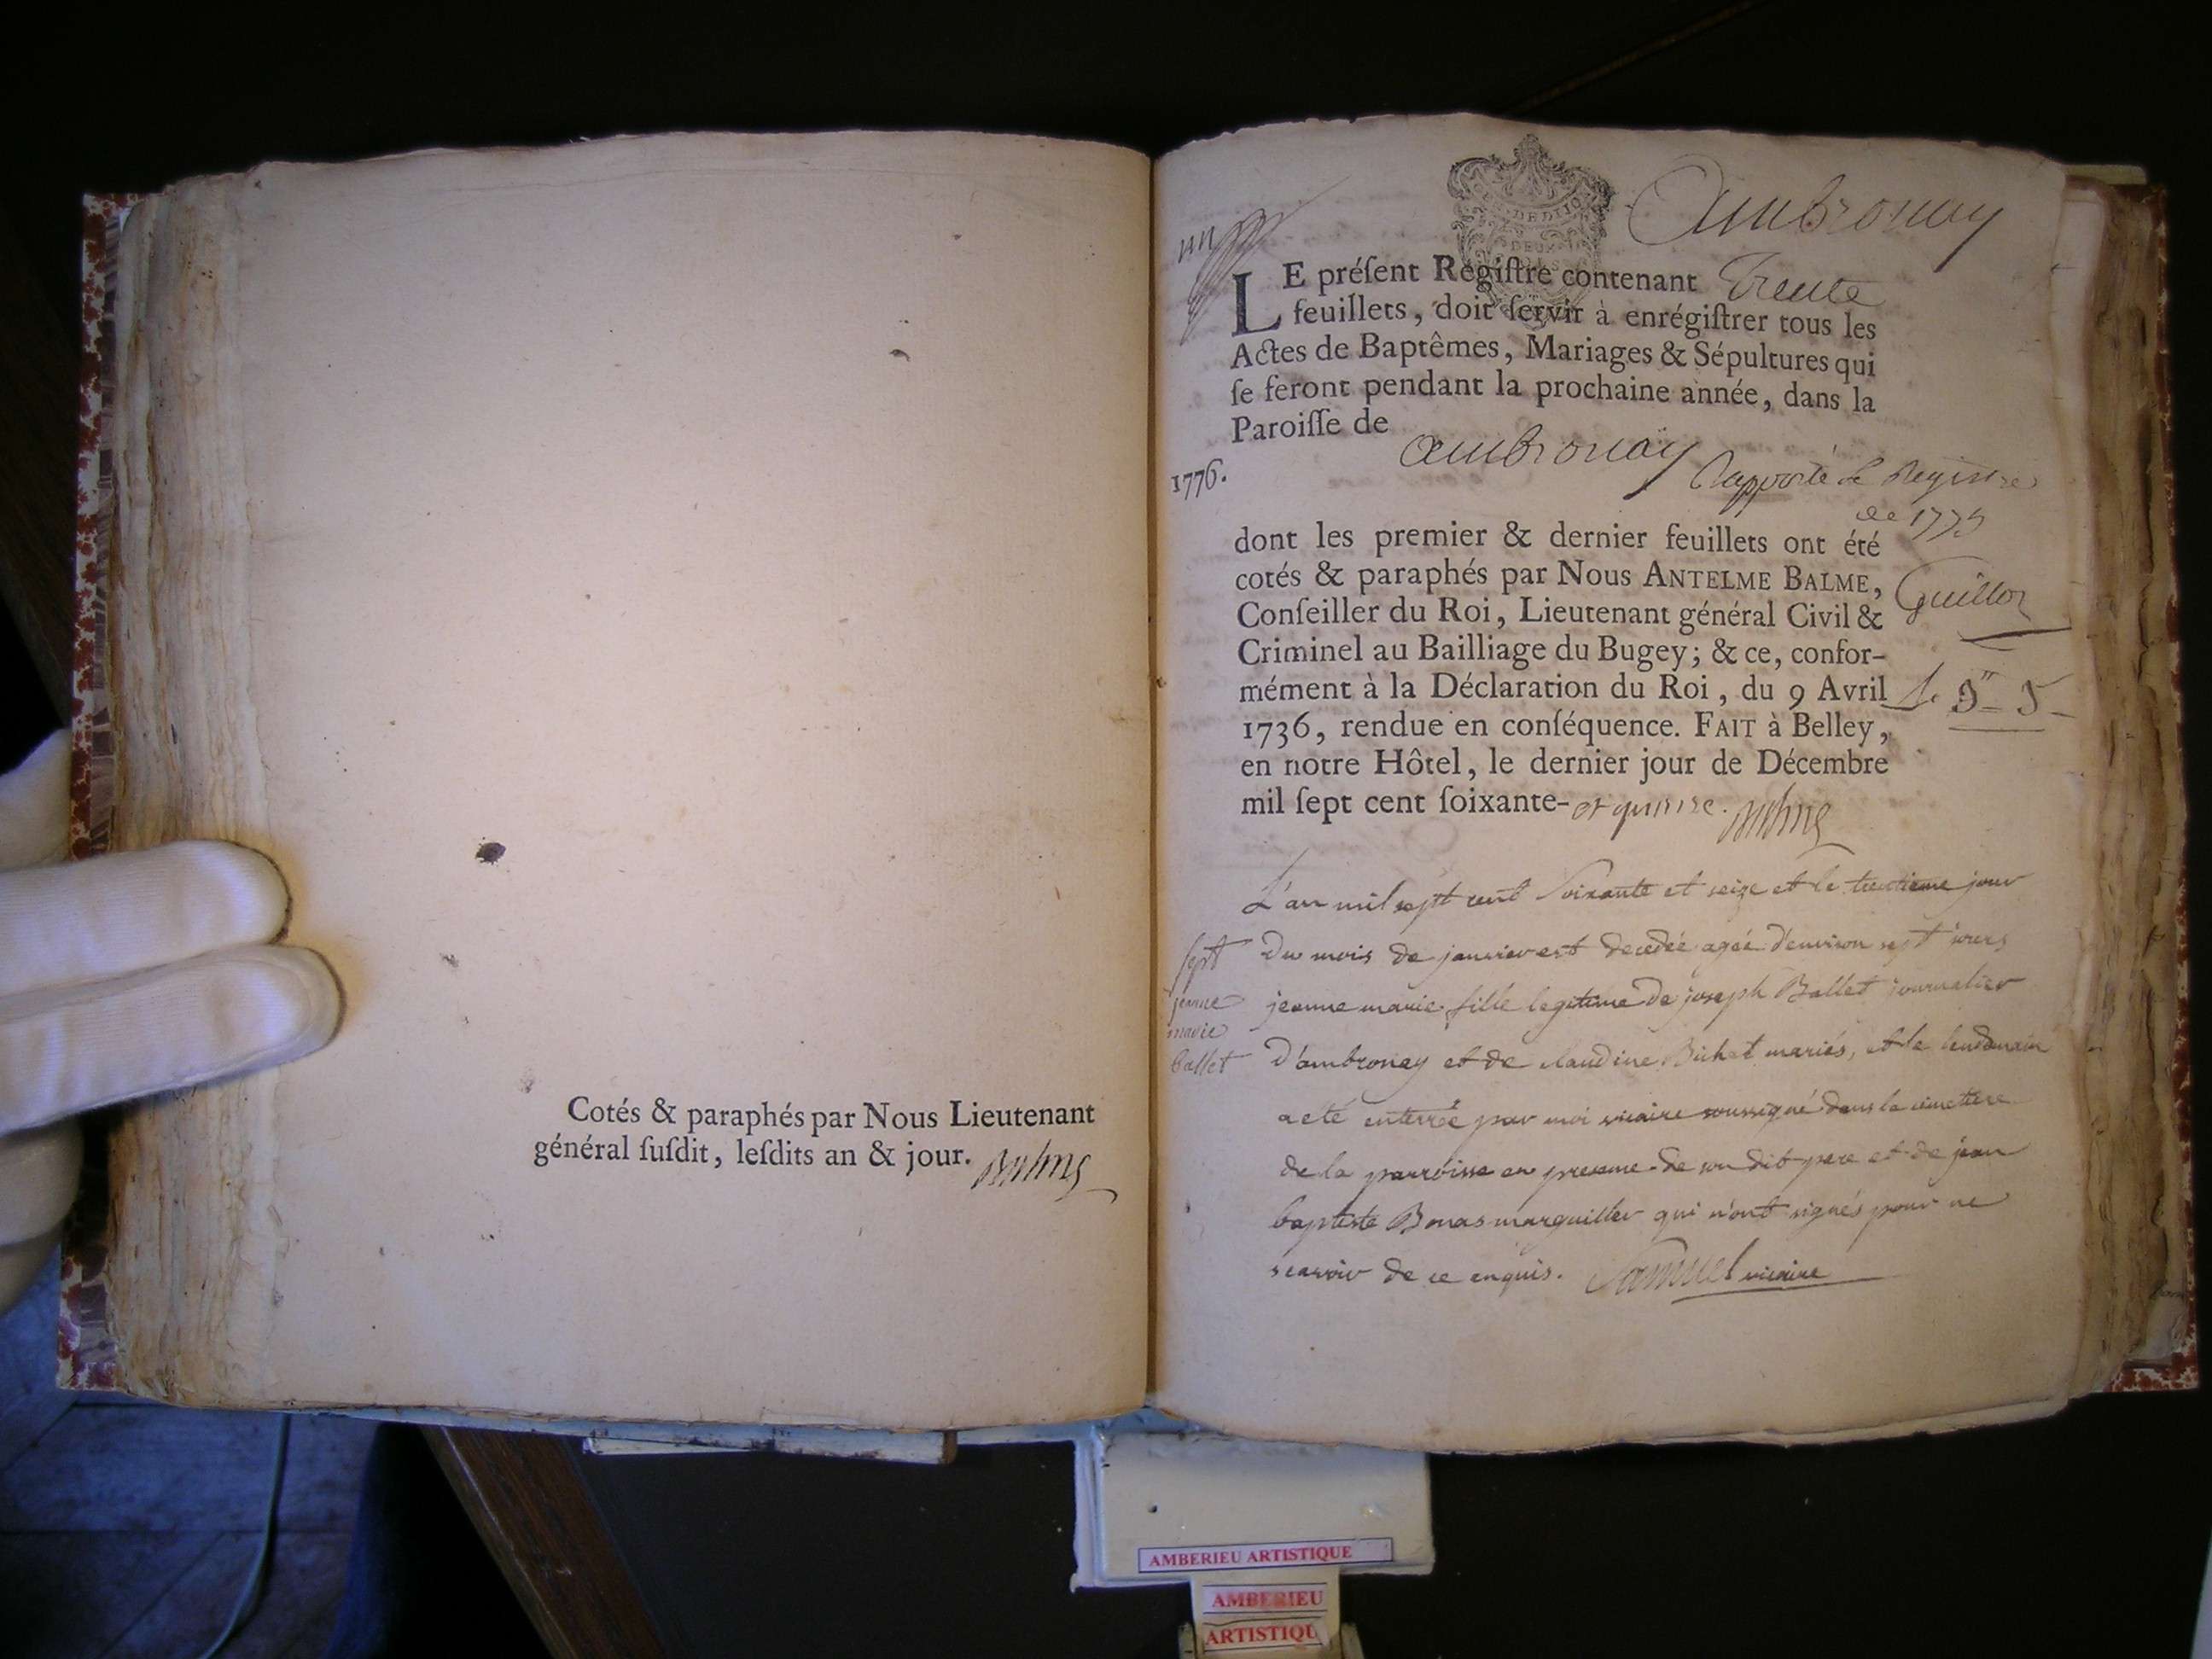 Cotés & paraphés par Nous Lieutenant
général ſuſdit, leſdits an & jour. Balme
un
DEUX
Ambronay
LE préſent Régiſtre contenant Trente
feuillets, doit ſervir à enrégiſtrer tous les
Actes de Baptêmes, Mariages & Sépultures qui
ſe feront pendant la prochaine année, dans la
Paroiſſe de
ambronay
1776.
Rapporté le Registre
de 1775
Guillot
dont les premier & dernier feuillets ont été
cotés & paraphés par Nous ANTELME BALME,
Conſeiller du Roi, Lieutenant général Civil &
Criminel au Bailliage du Bugey; & ce, confor-
mément à la Déclaration du Roi, du 9 Avril
1736, rendue en conſéquence. FAIT à Belley,
en notre Hôtel, le dernier jour de Décembre
mil ſept cent ſoixante- et quinze. Balme
L'an mil sept cent Soixante et seize et le trentieme jour
du mois de janvier est decedée ageé d'environ sept jours
jeanne marie fille legitime de joseph Ballet journalier
d'ambronay et de claudine Bichat mariés, et le lendemain
a eté enterrée par moi vicaire soussigné dans le cimettiere
de la parroisse en presence de son dit pere et de jean
baptiste Bonas marguiller qui n'ont signés pour ne
scavoir de ce enquis. Samuel vicaire
sept
jeanne
marie
ballet
AMBERIEU ARTISTIQUE
AMBERIEU
ARTISTIQU